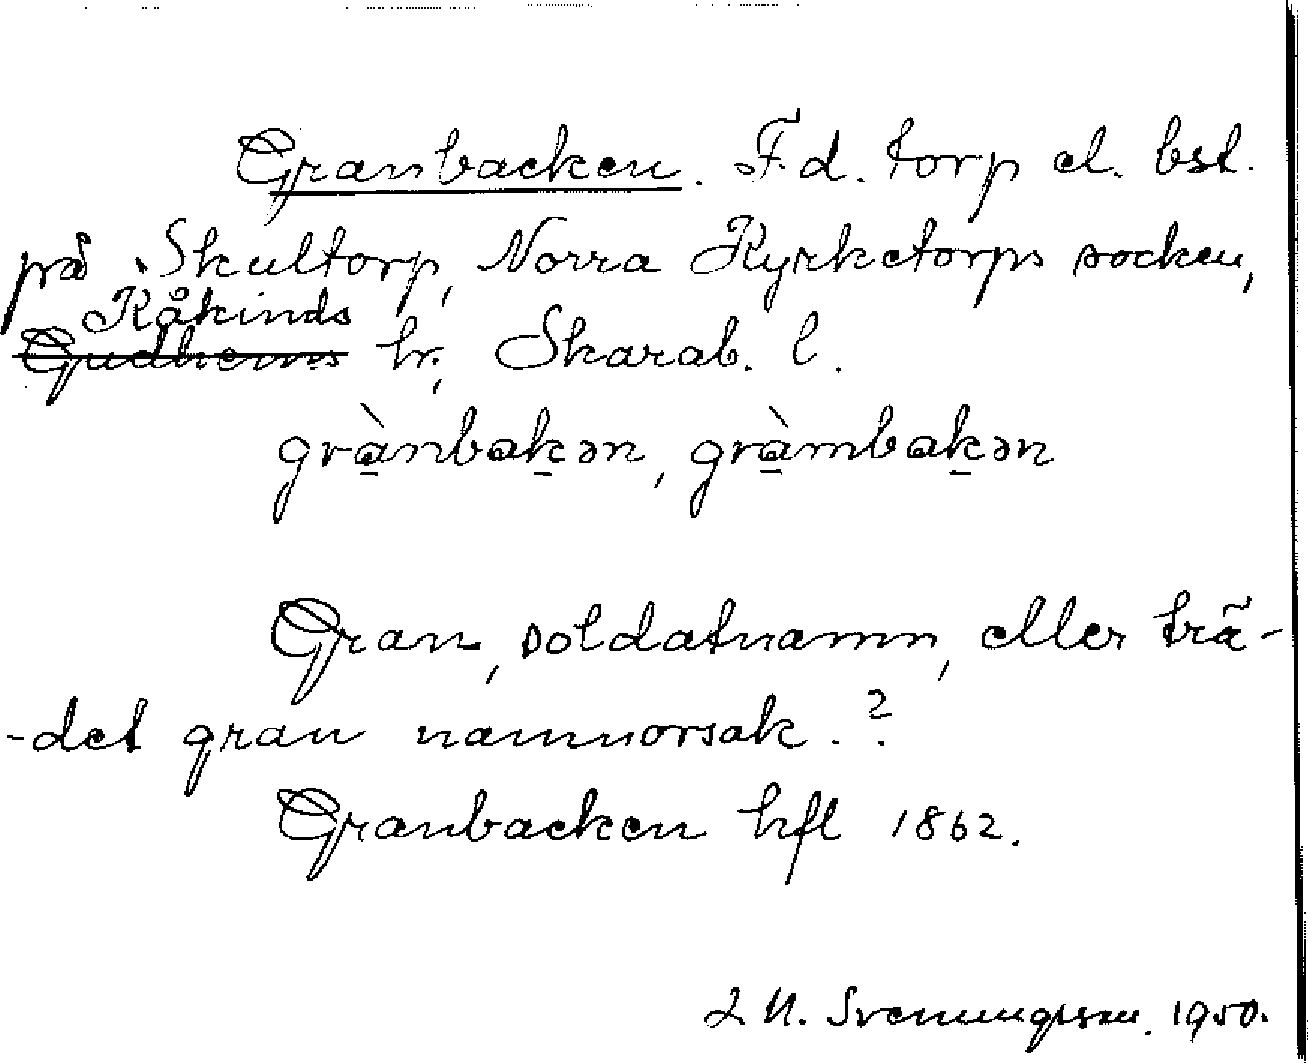 Granbacken. F.d. torp el. bst.
på Skultorp, Norra Kyrketorps socken,
Kåkinds
Gudhems hr, Skarab. l.
grànba̱ḵən, gràmba̱ḵən
Gran, soldatnamn, eller trä-
-det gran namnorsak.?
Granbacken hfl 1862.
L N. Svenungsson. 1950.